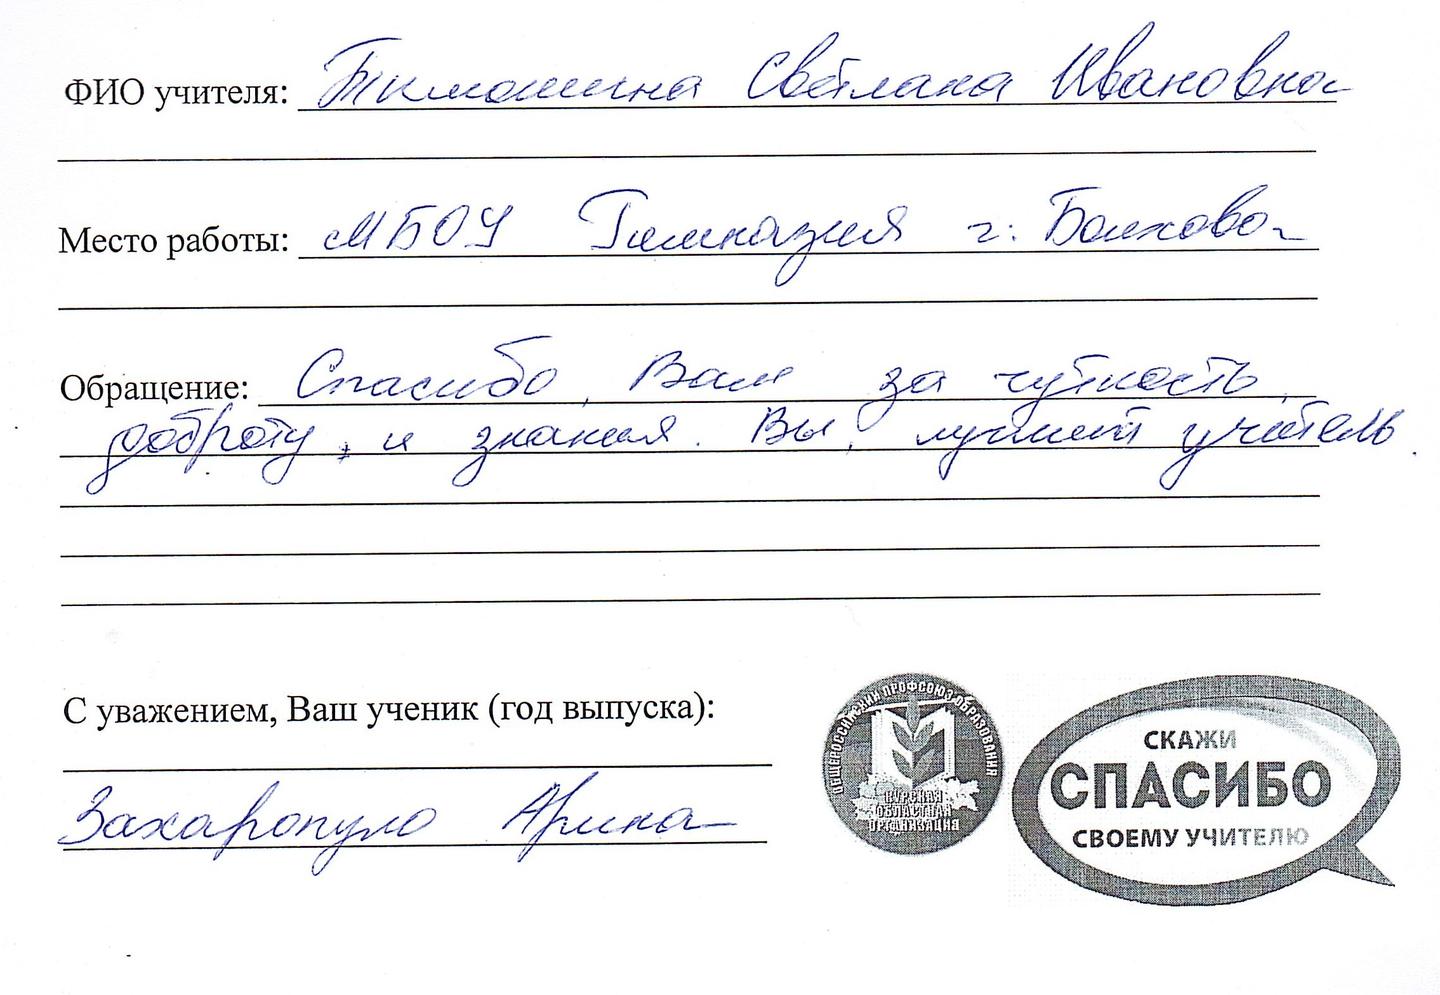 ФИО учителя: Тимошина Светлана Ивановна
Место работы: МБОУ Гимназия г. Болхова
Обращение: Спасибо, Вам за чуткость,
доброту, и знания. Вы, лучший учитель.
С уважением, Ваш ученик (год выпуска):
Захаропуло Арина
ОБЩЕРОССИЙСКИЙ ПРОФСОЮЗ ОБРАЗОВАНИЯ
КУРСКАЯ
ОБЛАСТНАЯ
ОРГАНИЗАЦИЯ
СКАЖИ
СПАСИБО
СВОЕМУ УЧИТЕЛЮ